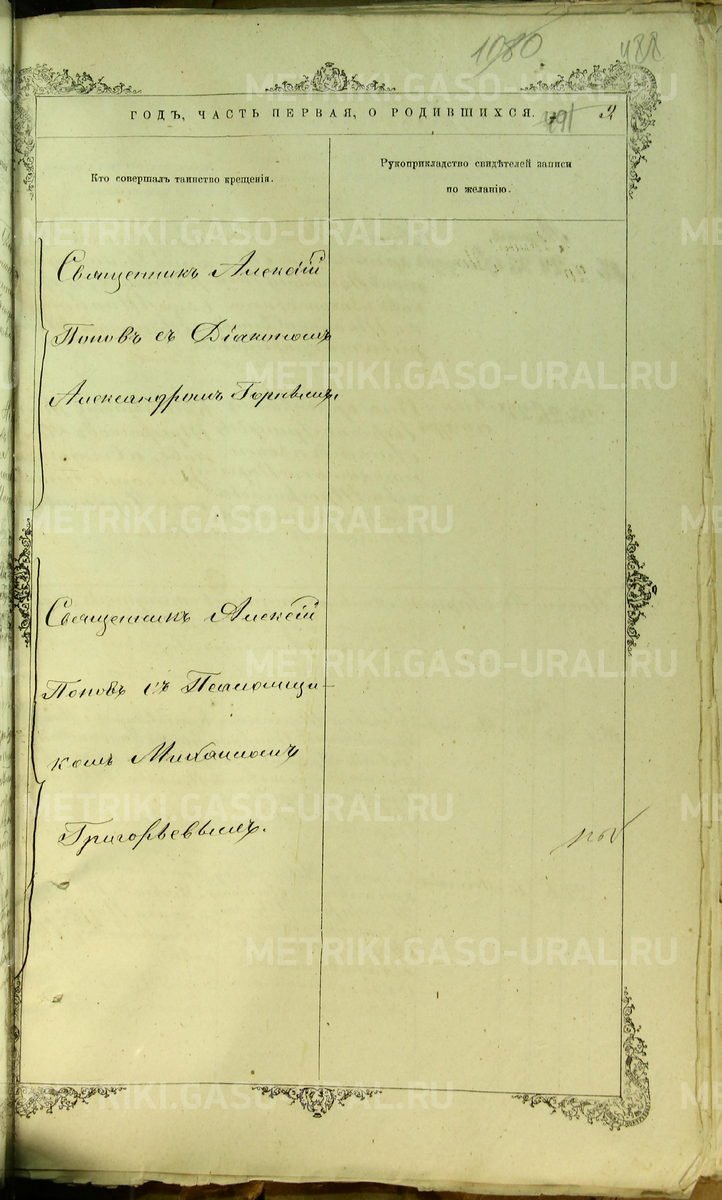 1080
488
ГОДЪ, ЧАСТЬ ПЕРВАЯ, О РОДИВШИХСЯ.
491
2
Кто совершалъ таинство крещенія.
Рукоприкладство свидѣтелей записи
по желанію.
Священникъ Алексій
Поповъ съ Діакономъ
Александромъ Горнымъ
Священникъ Алексій
Поповъ съ Псаломщи-
комъ Михаиломъ
Григорьевымъ.
METRIKI.GASO-URAL.RU